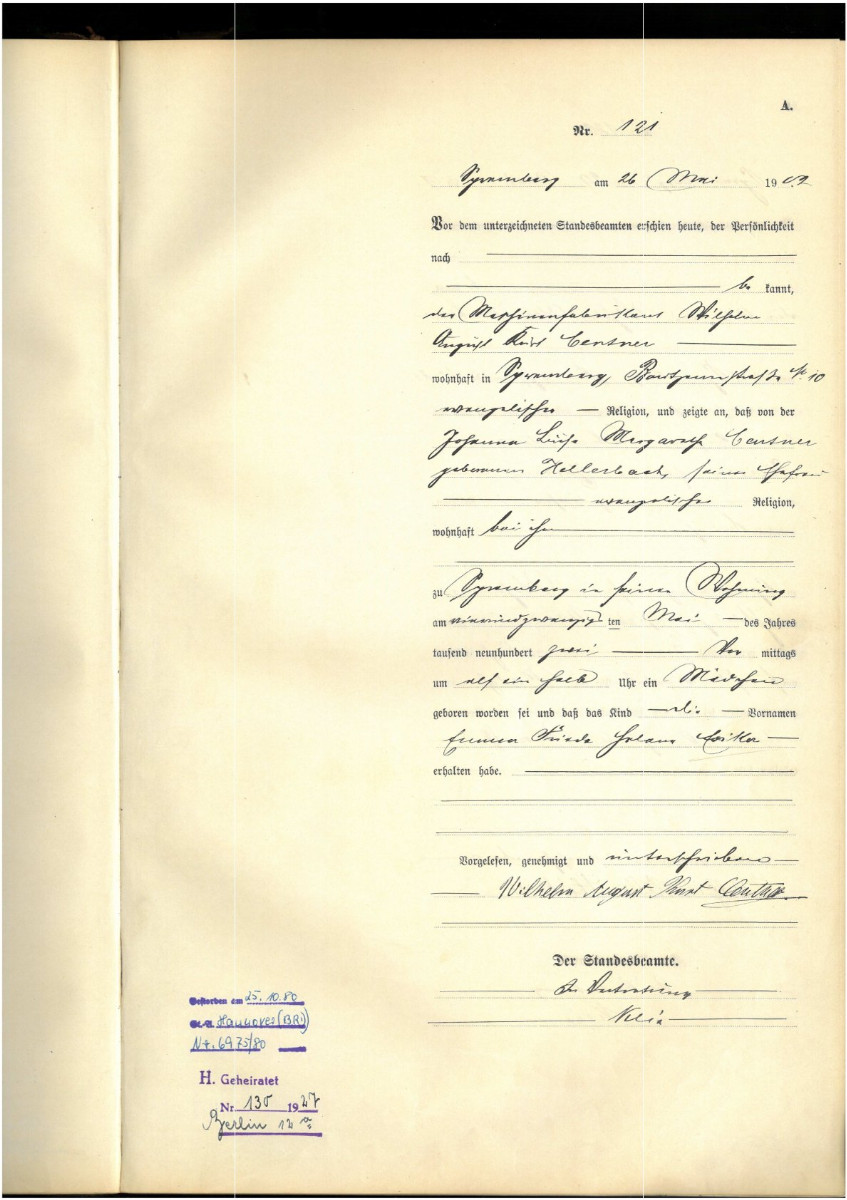 A.
Nr. 121
Spremberg am 26 Mai 1902
Vor dem unterzeichneten Standesbeamten erschien heute, der Persönlichkeit
nach
be kannt,
der Maschinenfabrikant Wilhelm
August Kurt Centner
wohnhaft in Spremberg, Bautzenerstraße No 10
evangelischer Religion, und zeigte an, daß von der
Johanna Luise Margareth Centner
geborenen Hellerbach, seiner Ehefrau
evangelischer Religion,
wohnhaft bei ihm
zu Spremberg in seiner Wohnung
am vierundzwanzig ten Mai des Jahres
tausend neunhundert zwei Vor mittags
um elf ein halb Uhr ein Mädchen
geboren worden sei und daß das Kind die Vornamen
Emma Frieda Erika
erhalten habe.
Vorgelesen, genehmigt und unterschrieben
Wilhelm August Kurt Centner
Der Standesbeamte.
In Vertretung
Gestorben am 25.10.80
Hannover (BRD)
Nr. 6975/80
H. Geheiratet
Nr. 135 1927
Berlin 12a